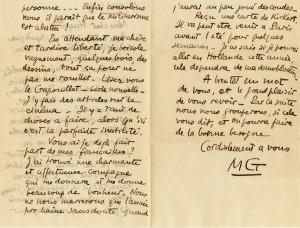 personne .... Enfin consolons
nous il paraît que le
et abattu !
En attendant ma chère
et tardive liberté, je bricole
vaguement, quelques bois, des
dessins, tout ça pour ne
pas me rouiller. Lisez vous
le Crapouillot - Série nouvelle -
J'y fais des articles sur le
cinéma - Il y a tant de
choses à faire, alors qu'ici
c'est la parfaite inutilité.
Vous ai-je déjà fait
part de mes fiançailles ?
J'ai trouvé une charmante
et affectueuse compagne
qui me donnera et me donne
beaucoup de bonheur. Nous
ne nous marierons que l'année
prochaine sans doute, quand
j'aurai un peu joué des coudes.
Reçu une carte de
Il va peut être venir à Paris
avant l'été pour quelques
semaines - Je ne sais si je pourrai
aller en Hollande cette année
cela dépendra de
A bientôt un mot
de vous, et le grand plaisir
de vous revoir - Par la suite
nous nous proposerons, si cela
vous dit, et on pourra faire
de la bonne besogne.
Cordialement à vous
MG